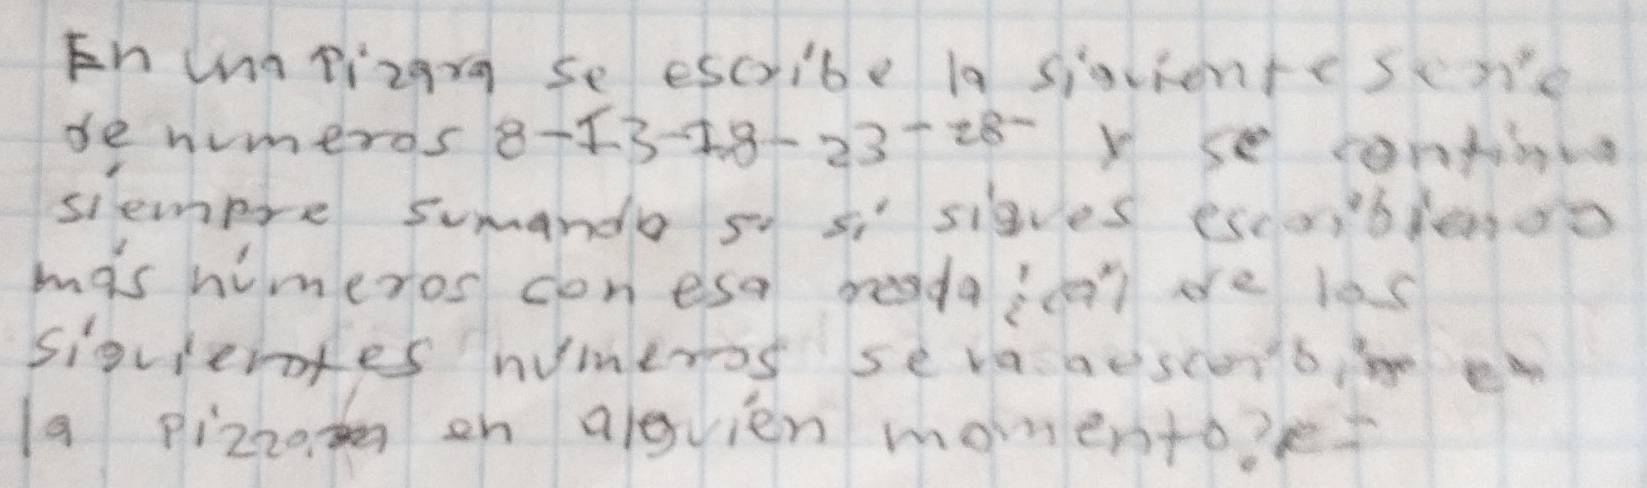 En una Pizara se escribe la siguiente serie
de numeros 8-13-18-23-28- y se continua
siempre sumando 5, si sigues escribiendo
más números con esa regla ¿cuál de los
siguientes números se va a escribir en
la Pizzara en alguién momento?